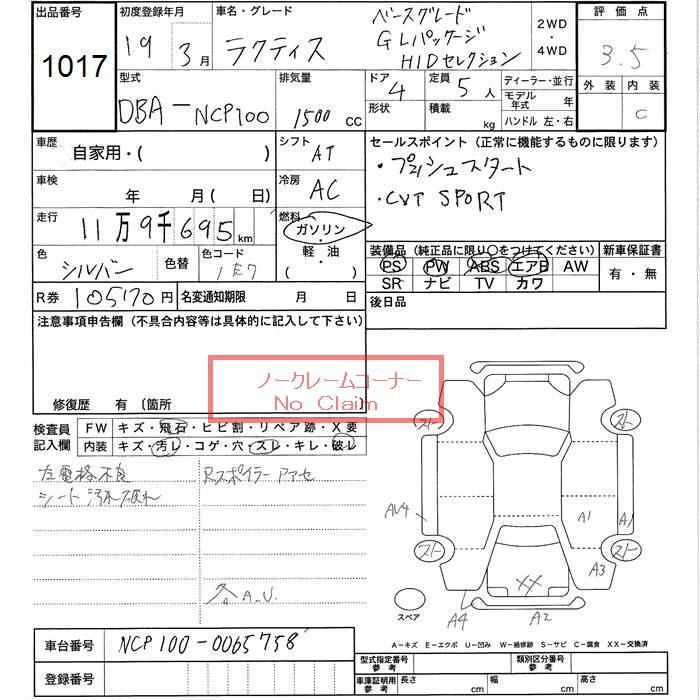 出品番号 初度登録年月 車名・グレード 評価点
1017 19 3月 ラクティス ベースグレード GLパッケージ HIDセレクション 2WD・4WD 3.5
外装 内装
C
型式 排気量 ドア 定員 ディーラー・並行
DBA-NCP100 1500cc 4 5人 モデル年式 年
形状 積載 kg ハンドル 左・右
車歴 自家用・( ) シフト AT セールスポイント(正常に機能するものに限ります)
・プッシュスタート
車検 年 月( 日) 冷房 AC
・CVT SPORT
走行 11万9千695km 燃料 ガソリン・軽・油( )
色 シルバー 色替 色コード 1E7
装備品(純正品に限り○をつけてください) 新車保証書
PS PW ABS エアB AW 有・無
SR ナビ TV カワ
R券 105170円 名変通知期限 月 日
後日品
注意事項申告欄(不具合内容等は具体的に記入して下さい)
ノークレームコーナー
No Claim
修復歴 有〔箇所 〕
検査員記入欄 FW キズ・飛石・ヒビ割・リペア跡・X要
内装 キズ・汚レ・コゲ・穴・スレ・キレ・破レ
左電格不良 Rスポイラーアアセ
シート汚れ破れ
各A.U.
スト スト
スト スト
AU4 A1 A1
A3
XX
A4 A2
スペア
A-キズ E-エクボ U-凹み W-補修跡 S-サビ C-腐食 XX-交換済
車台番号 NCP100-0065758
登録番号
型式指定番号参考 類別区分番号参考
車庫証明用参考 長さ cm 幅 cm 高さ cm